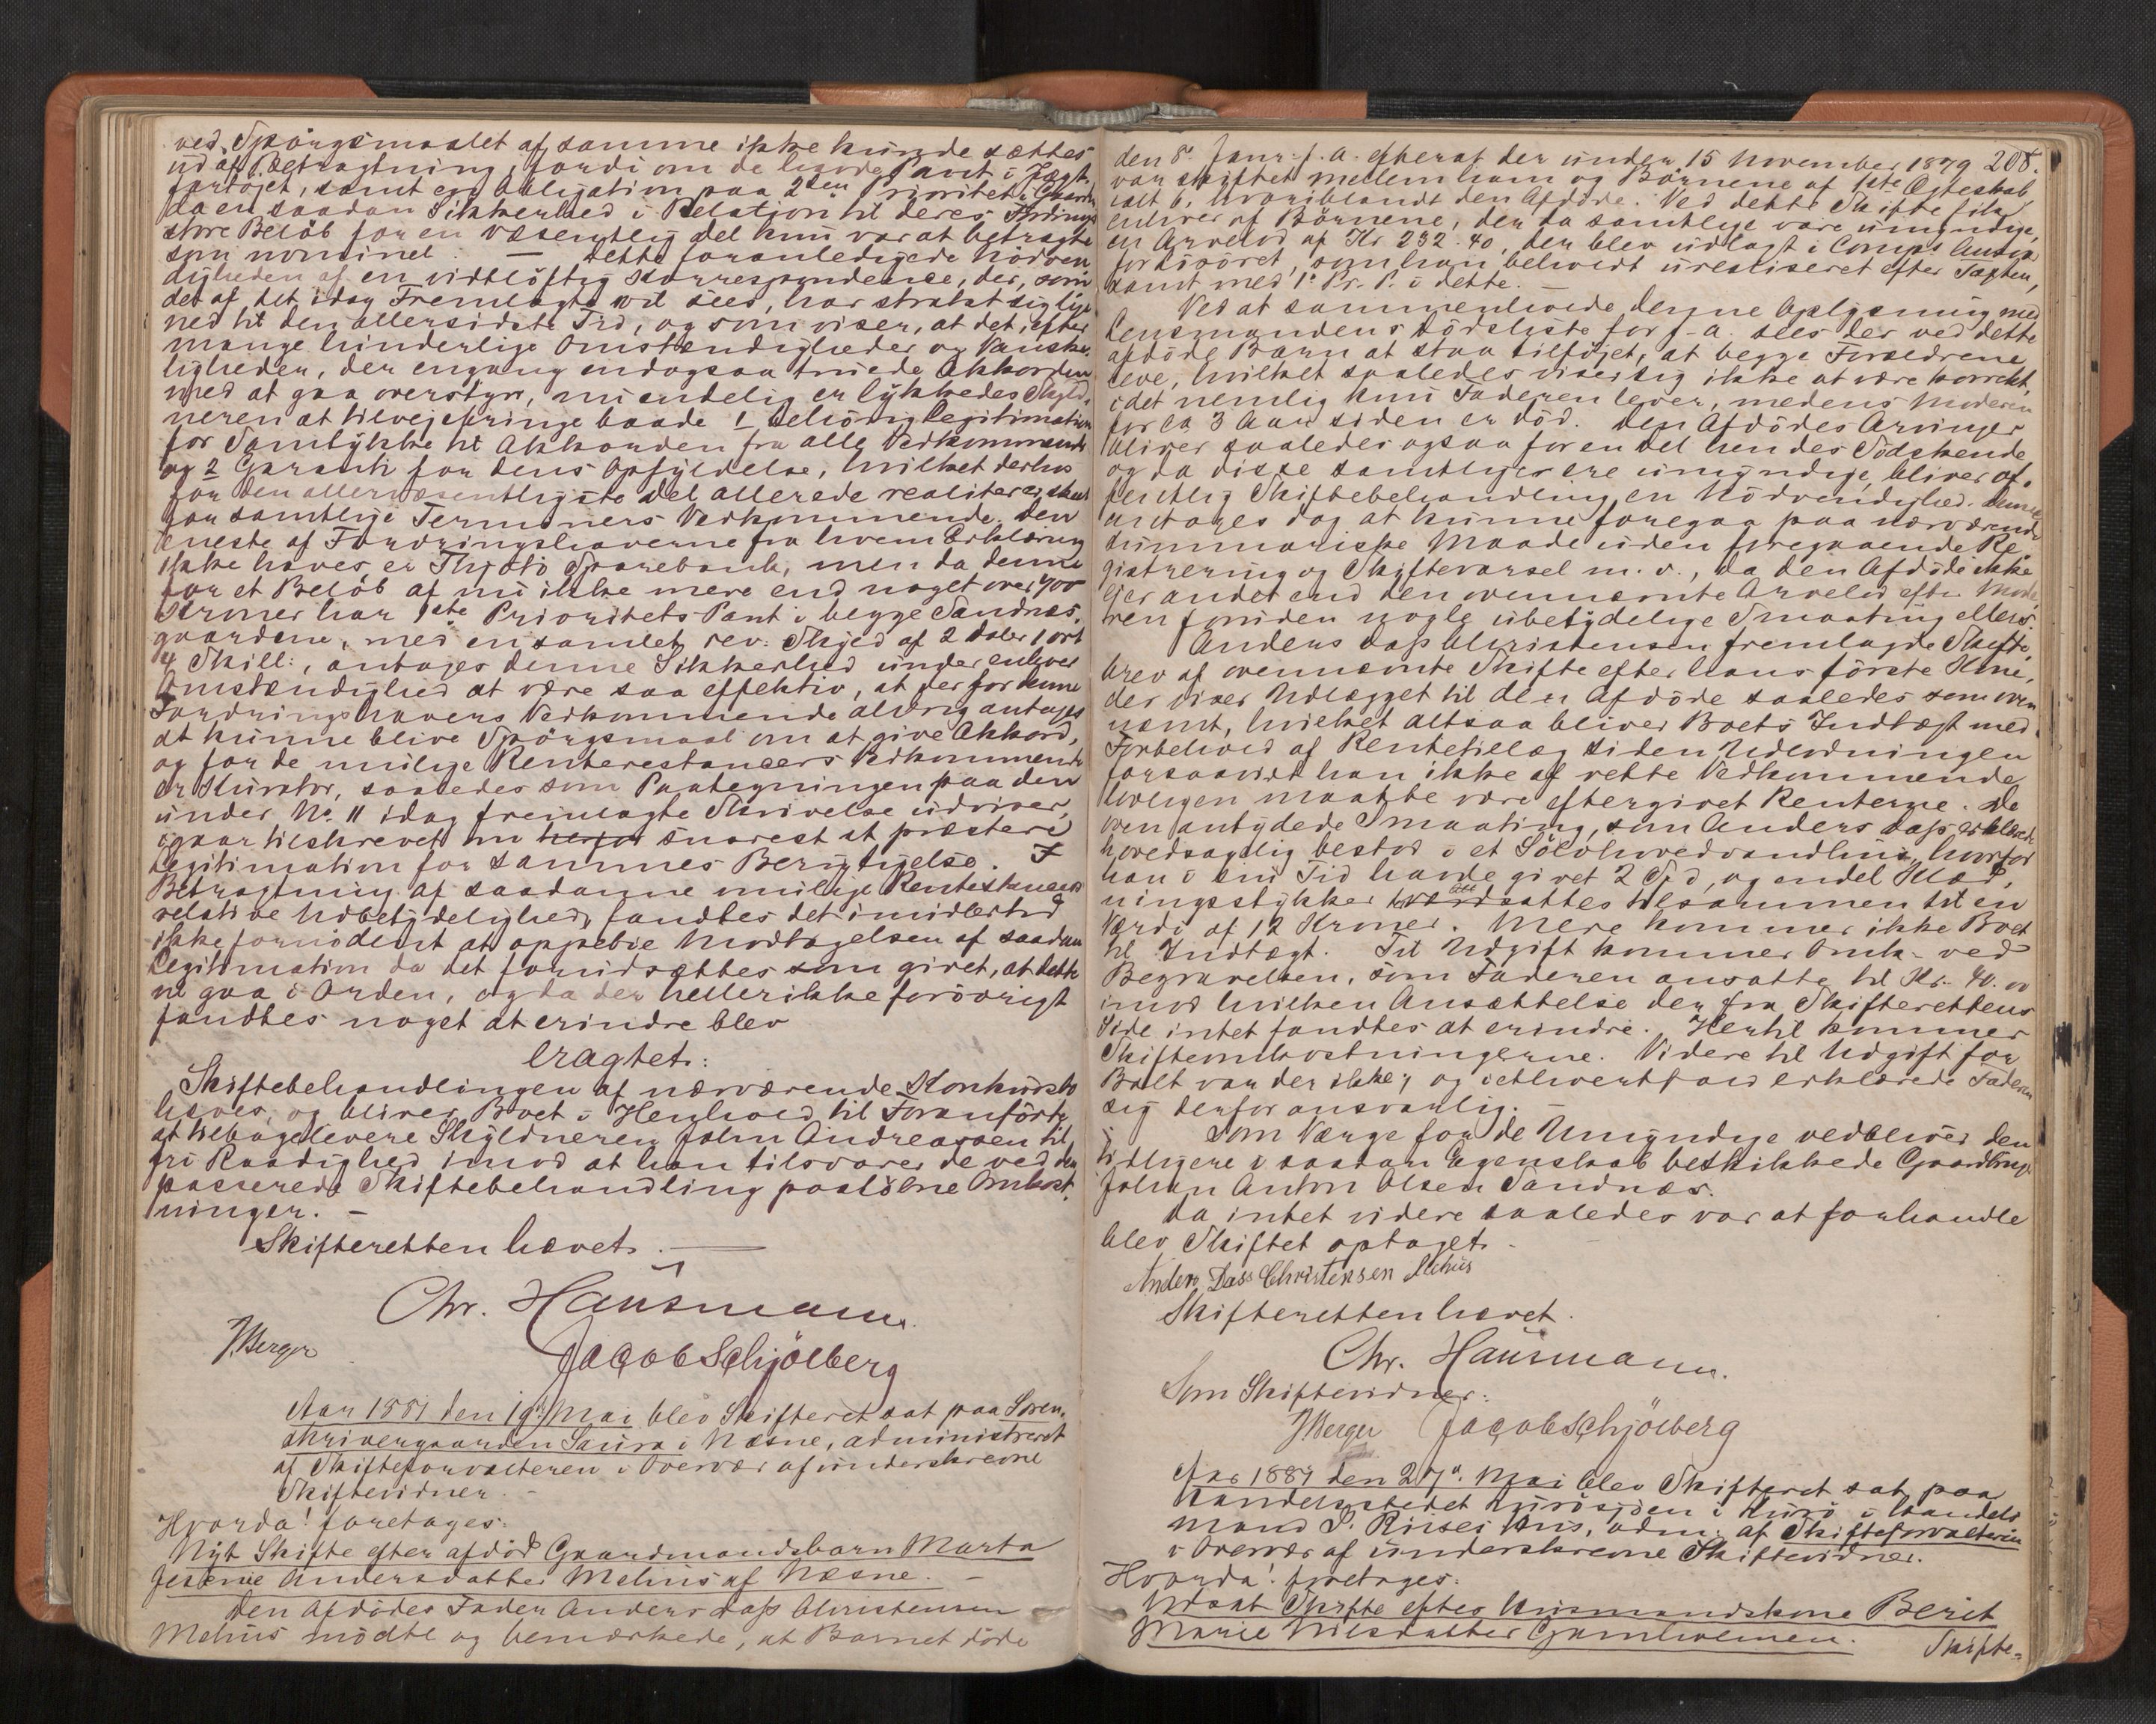 ved Spörgsmaalet af samme ikke kunde sættes
ud af Betragtning, fordi om de havde Pant i Jægt-
fartöjet, samt en Obligation paa 2den Prioritet i Gaarden
da en saadan Sikkerhed i Relation til deres Fordrings
store Belöb for en væsentlig del kun var at betragte
som nominel. — Dette foranledigede Nödven
digheden af en vidtlöftig Korrespondence, der, som
det af det idag Fremlagte vil sees, har strakt sig lige
ned til den allersidste Tid, og som viser, at det, efter
mange hinderlige Omstændigheder og Vanske-
ligheder, der engang endogsaa truede Akkorden
med at gaa overstyr, nu endelig er lykkedes Skyld-
neren at tilvejebringe baade 1 behörig Legitimation
for Samtykke til Akkorden fra alle Vedkommende
og 2 Garanti for dens Opfyldelse, hvilket derhos
for den allervæsentligste del allerede realiter er skeet
for samtlige Terminers Vedkommende. Den
eneste af Fordringshaverne fra hvem Erklæring
ikke haves er Thjötö Sparebank, men da denne
for et Belöb af nu ikke mere end noget over 400
Kroner har 1ste Prioritets Pant i begge Sandnæs-
gaardene, med en samlet rev: Skyld af 2 daler 1 ort
4 Skill:, antages denne Sikkerhed under enhver
Omstændighed at være saa effektiv, at der for denne
Fordringshavers Vedkommende aldrig antages
at kunne blive Spörgsmaal om at give Akkord,
og for de mulige Renterestancers Vedkommende
er Kurator, saaledes som Paategningen paa den
under No. 11 idag fremlagte Skrivelse udviser,
igaar tilskrevet om snarest at præstere
Legitimation for sammes Berigtigelse. I
Betragtning af saadanne mulige Restancers
relative Ubetydelighed, fandtes det imidlertid
ikke fornödent at oppebie Modtagelsen af saadan
Legitimation da det forudsættes som givet, at dette
vil gaa i Orden, og da der heller ikke forövrigt
fandtes noget at erindre blev
Eragtet:
Skiftebehandlingen af nærværende Konkursbo
hæves, og bliver Boet i Henhold til Foranförte
at tilbagelevere Skyldneren John Andreassen til
fri Raadighed imod at han tilsvarer de ved den
passerede Skiftebehandling paalöbne Omkost-
ninger. —
Skifteretten hævet. —
Chr. Hausmann.
J Berger
Jacob Schjölberg
Aar 1881 den 19de Mai blev Skifteret sat paa Soren-
skrivergaarden Saura i Næsne, administreret
af Skifteforvalteren i Overvær af underskrevne
Skiftevidner. —
Hvorda! foretages:
Nyt Skifte efter afdöd Gaardmandsbarn Marta
Jesenie Andersdatter Mehus af Næsne. —
Den Afdödes Fader Anders Dass Christensen
Mehus mödte og bemærkede, at Barnet döde
208.
den 8de Janr. f. A. efterat der under 15 November 1879
var skiftet mellem ham og Börnene af 1ste Ægteskab
ialt 6, hvoriblandt den Afdöde. Ved dette Skifte fik
enhver af Börnene, der da samtlige vare umyndige,
en Arvelod af Kr 232.40, der blev udlagt i Comps Andin
fordisöret, som han beholdt urealiseret efter Taxten,
samt med 1. Pr. P. i dette. —
Ved at sammenholde denne Oplysning med
Lensmandens Dödsliste for f. A. sees der ved dette
afdöde Barn at staa tilföjet, at begge Forældrene
leve, hvilket saaledes viser sig ikke at være korrekt,
idet nemlig kun Faderen lever, medens Moderen
for ca 3 Aar siden er död. Den Afdödes Arvinger
bliver saaledes ogsaa for en del hendes Södskende
og da disse samtlige ere umyndige, bliver of-
fentlig Skiftebehandling en Nödvendighed. Denne
antages dog at kunne foregaa paa nærværende
summariske Maade uden foregaaende Re-
gistrering og Skiftevarsel m. v., da den Afdöde ikke
ejer andet end den ovennævnte Arvelod efter Mode-
ren foruden nogle ubetydelige Smaating ellers.
Anders Dass Christensen fremlagde Skifte-
brev af ovennævnte Skifte efter hans förste Kone,
der viser Udlægget til den Afdöde saaledes som oven
nævnt, hvilket altsaa bliver Boets Indtægt med
Forbehold af Rentetillæg siden Udlodningen
forsaavidt han ikke af rette Vedkommende
lovligen maatte være eftergivet Renterne. De
oven antydede Smaating, som Anders Dass erklærede
hovedsagelig bestod i et Sölvhovedvandshus, hvorfor
han i sin Tid havde givet 2 Spd, og endel Klæd-
ningsstykker ansattes tilsammen til en
Værdi af 12 Kroner. Mere kommer ikke Boet
til Indtægt. Til Udgift kommer Omk. ved
Begravelsen, som Faderen ansatte til Kr. 40.00
imod hvilken Ansættelse der fra Skifterettens
Side intet fandtes at erindre. Hertil kommer
Skifteomkostningerne. Videre til Udgift for
Boet var der ikke, og i ethvert fald erklærede Faderen
sig derfor ansvarlig. —
Som Værge for de Umyndige vedblives den
tidligere i saadan Egenskab beskikkede Gaardbruger
Johan Anton Olsen Sandnæs.
Da intet videre saaledes var at forhandle
blev Skiftet optaget. —
Anders Dass Christensen Mehus
Skifteretten hævet.
Chr. Hausmann.
Som Skiftevidner:
J Berger Jacob Schjölberg
Aar 1881 den 27de Mai blev Skifteret sat paa
Handelsstedet Luröygjen i Lurö i Handels
mand P. Riises Hus, adm. af Skifteforvalteren
i Overvær af underskrevne Skiftevidner.
Hvorda! foretages:
Udsat Skifte efter Husmandskone Berit
Marie Nilsdatter Gamholmen.
Skifte-